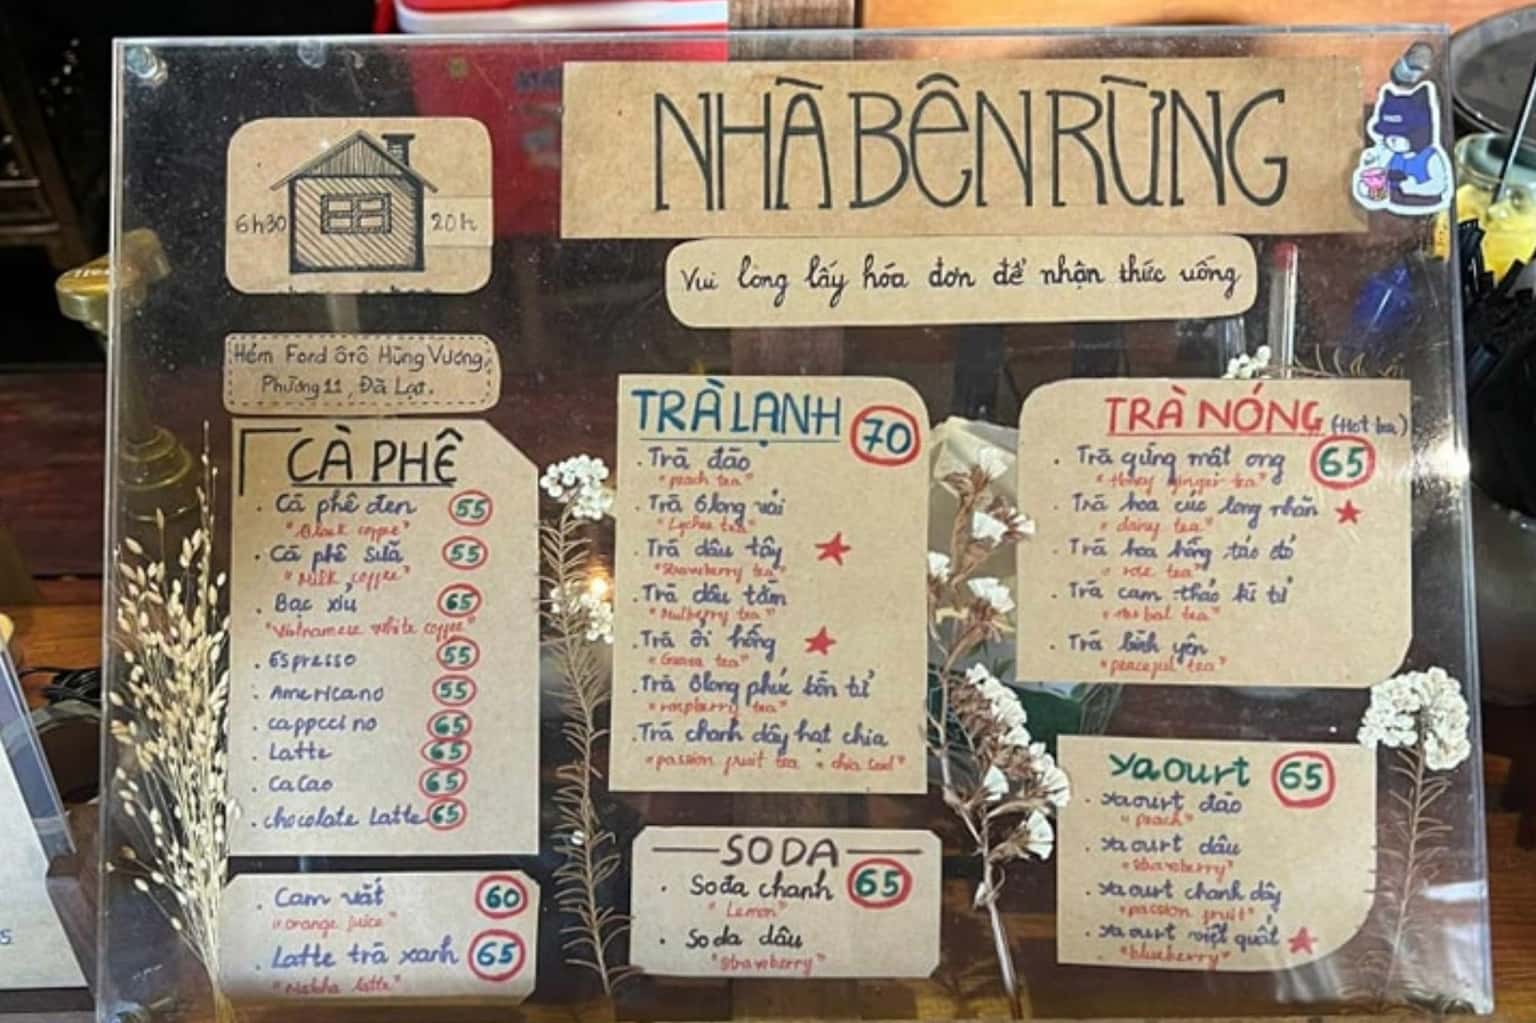 NHÀ BÊN RỪNG
6h30 20h
Vui lòng lấy hóa đơn để nhận thức uống
Hẻm Ford ôtô Hùng Vương,
Phường 11, Đà Lạt.
CÀ PHÊ
. Cà phê đen 55
"Black coffee"
. Cà phê sữa 55
"Milk coffee"
. Bạc xỉu 65
"Vietnamese white coffee"
. Espresso 55
. Americano 55
. cappccino 65
. Latte 65
. CaCao 65
. chocolate Latte 65
. Cam vắt 60
"orange juice"
. Latte trà xanh 65
"Matcha latte"
TRÀ LẠNH 70
. Trà đào
"peach tea"
. Trà ôlong vải
"Lychee tea"
. Trà dâu tây
"Strawberry tea"
. Trà dâu tằm
"Mulberry tea"
. Trà ổi hồng
"Guava tea"
. Trà ôlong phúc bồn tử
"raspberry tea"
. Trà chanh dây hạt chia
"passion fruit tea + chia seed"
SODA
. Soda chanh 65
"Lemon"
. Soda dâu
"Strawberry"
TRÀ NÓNG (Hot tea)
. Trà gừng mật ong 65
"Honey ginger tea"
. Trà hoa cúc long nhãn
"daisy tea"
. Trà hoa hồng táo đỏ
"rose tea"
. Trà cam thảo kỉ tử
"Herbal tea"
. Trà bình yên
"peaceful tea"
Yaourt 65
. Yaourt đào
"peach"
. Yaourt dâu
"strawberry"
. Yaourt chanh dây
"passion fruit"
. Yaourt việt quất
"blueberry"